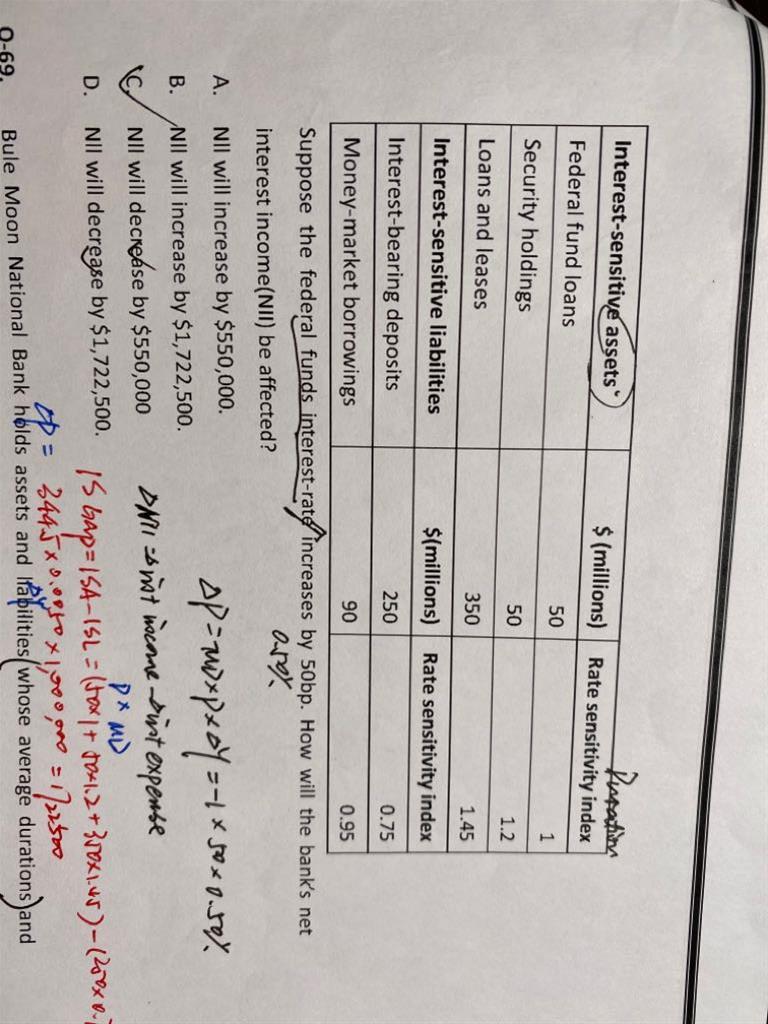 Duration
Interest-sensitive assets $ (millions) Rate sensitivity index
Federal fund loans 50 1
Security holdings 50 1.2
Loans and leases 350 1.45
Interest-sensitive liabilities $(millions) Rate sensitivity index
Interest-bearing deposits 250 0.75
Money-market borrowings 90 0.95
Suppose the federal funds interest-rate increases by 50bp. How will the bank's net
0.50%
interest income(NII) be affected?
A. NII will increase by $550,000.
ΔP = MD×P×ΔY = -1 × 50 × 0.50%
B. NII will increase by $1,722,500.
C. NII will decrease by $550,000
ΔNII → int income → int expense
D. NII will decrease by $1,722,500.
P × MD
IS Gap = ISA - ISL = (50×1 + 50×1.2 + 350×1.45) - (250×0.7
ΔP = 344.5 × 0.0050 × 1,000,000 = 1722500
ΔY
Q-69. Bule Moon National Bank holds assets and liabilities (whose average durations) and